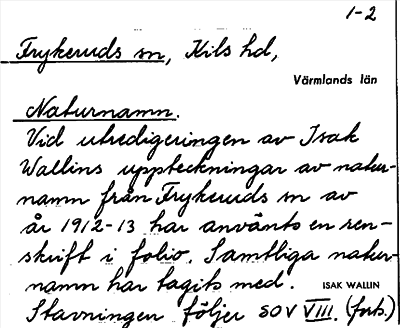 1-2
Frykeruds sn, Kils hd,
Värmlands län
Naturnamn.
Vid utredigeringen av Isak
Wallins uppteckningar av natur-
namn från Frykeruds sn av
år 1912-13 har använts en ren-
skrift i folio. Samtliga natur-
namn har tagits med. ISAK WALLIN
Stavningen följer SOV VIII. (forts.)